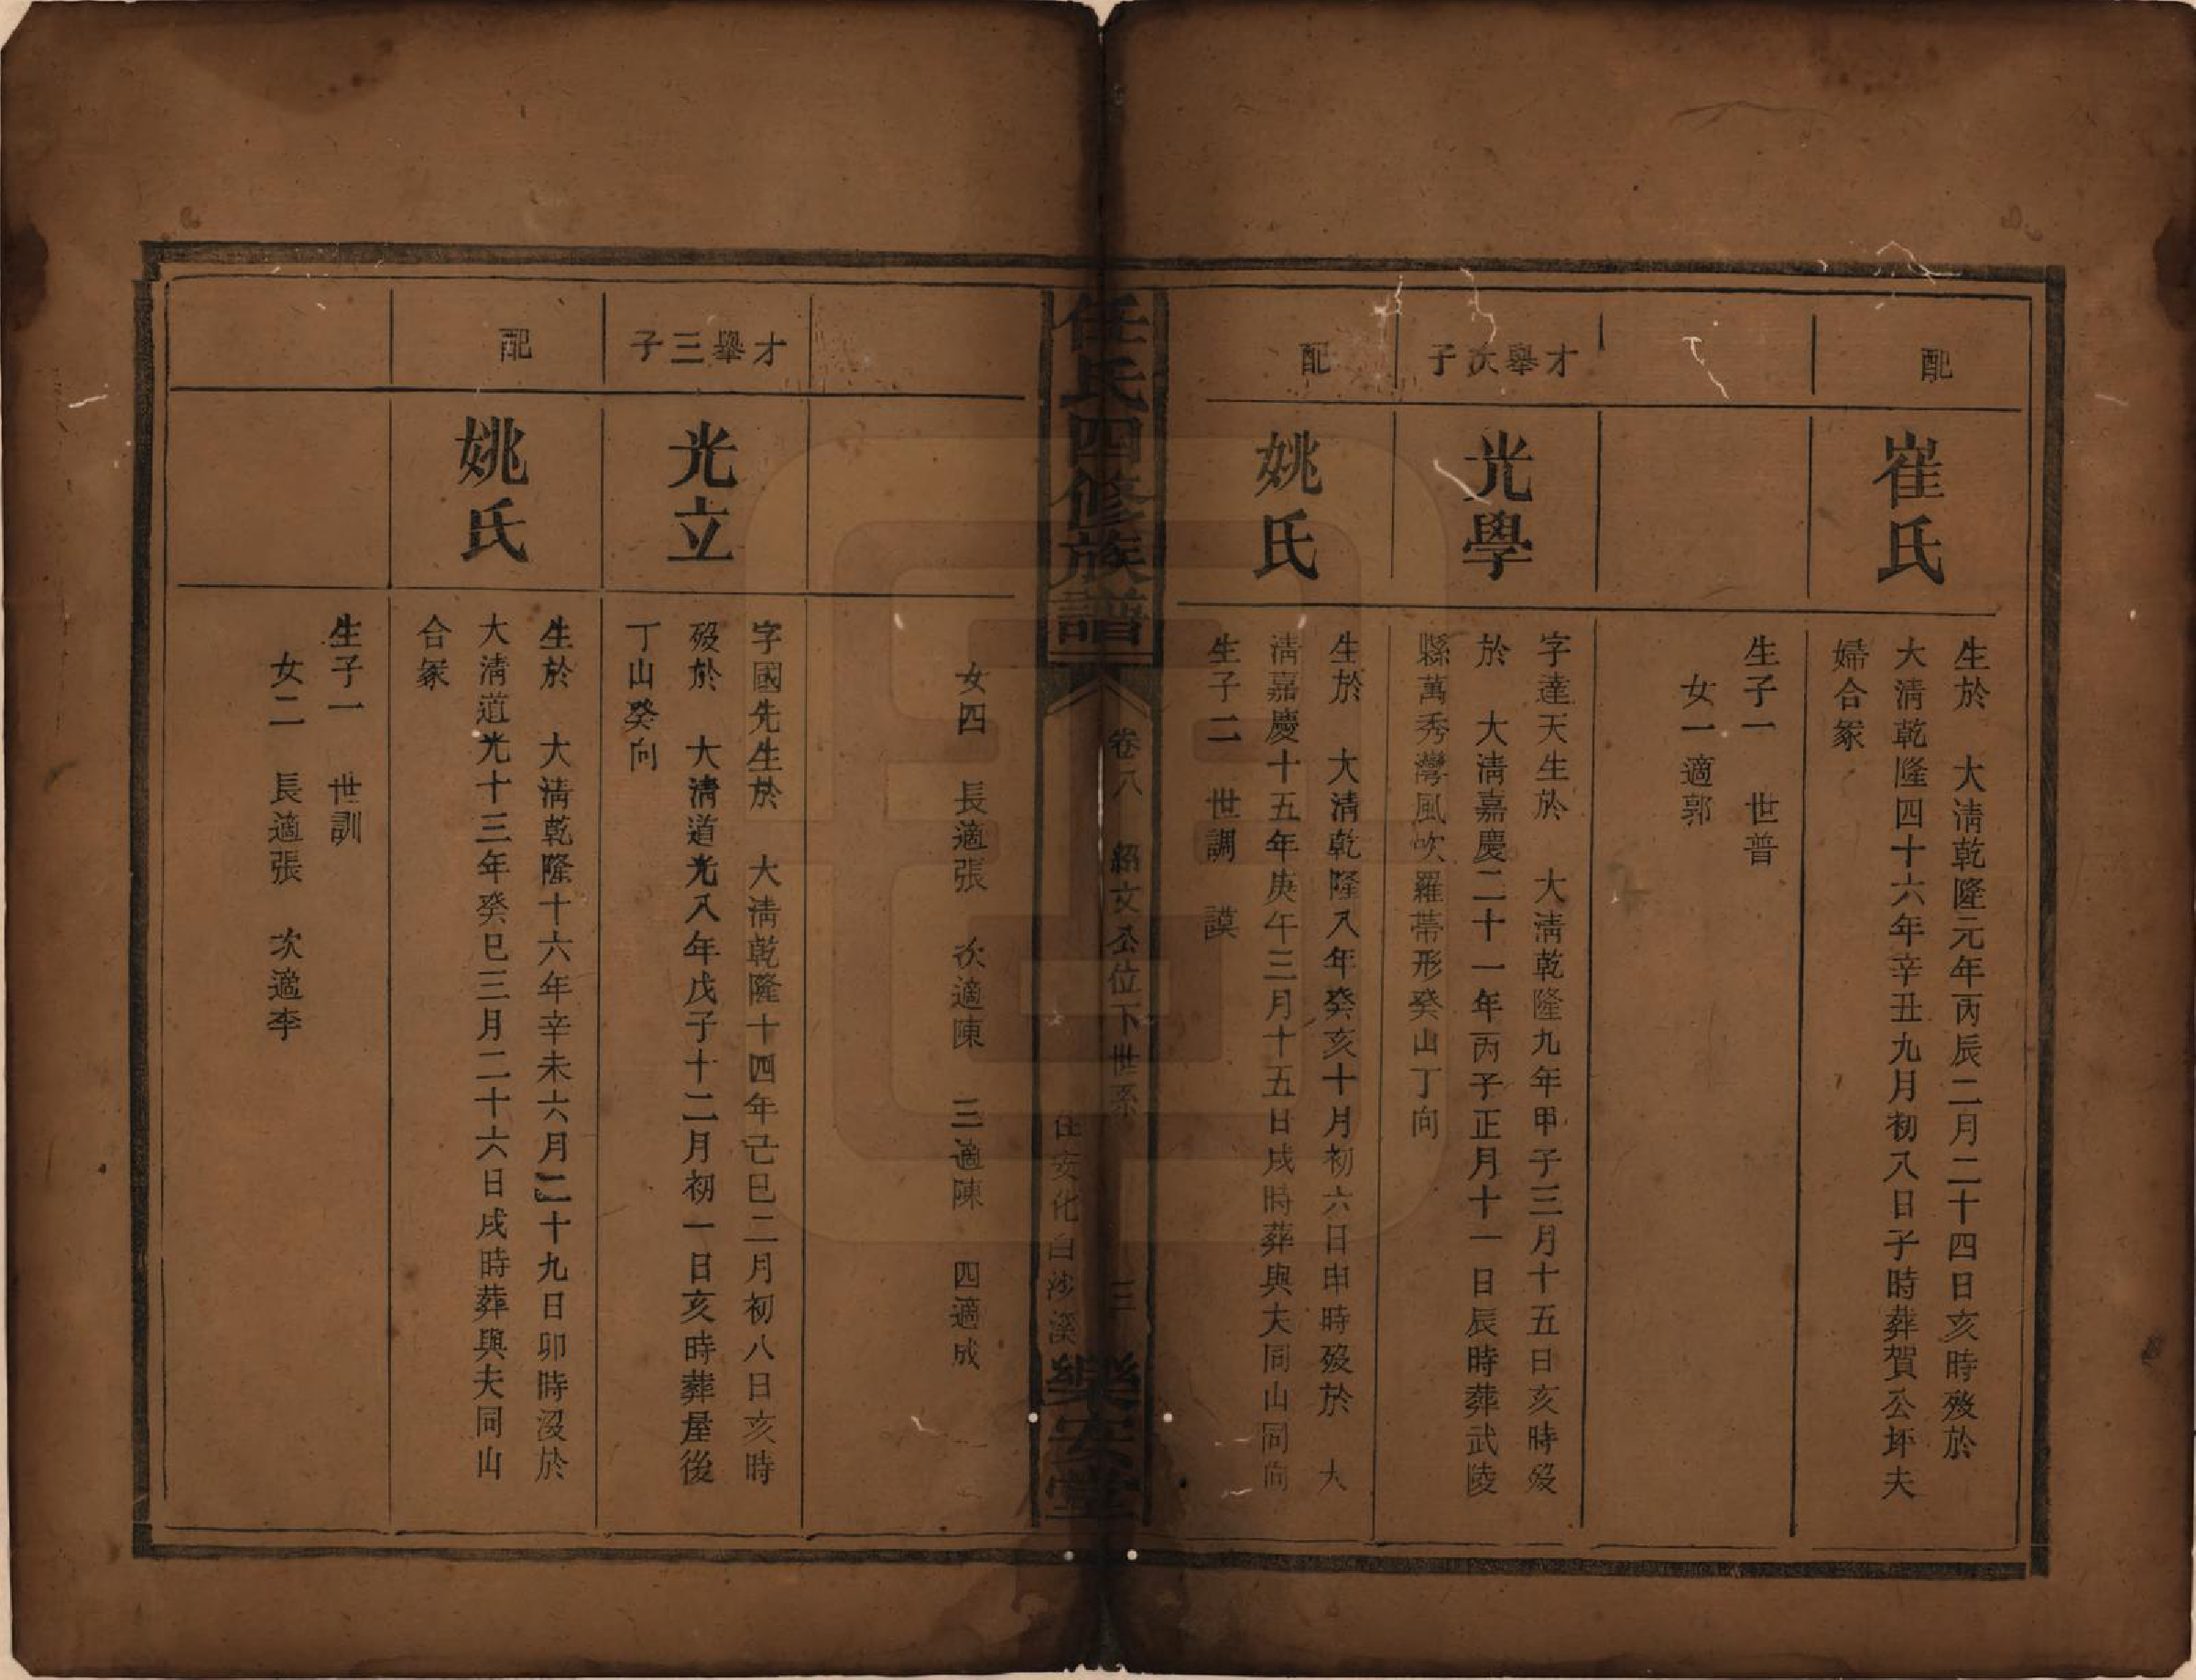 配
崔氏
生於　大淸乾隆元年丙辰二月二十四日亥時歿於
大淸乾隆四十六年辛丑九月初八日子時葬賀公坪夫
婦合冢
生子一　世普
女一適郭
才舉次子
光學
字達天生於　大淸乾隆九年甲子三月十五日亥時歿
於　大淸嘉慶二十一年丙子正月十一日辰時葬武陵
縣萬秀灣風吹羅帶形癸山丁向
配
姚氏
生於　大淸乾隆八年癸亥十月初六日申時歿於　大
淸嘉慶十五年庚午三月十五日戌時葬與夫同山同向
生子二　世調　謨
任氏四修族譜
卷八　紹文公位下世系
三
住安化白沙溪
樂安堂
女四　長適張　次適陳　三適陳　四適成
才舉三子
光立
字國先生於　大淸乾隆十四年己巳二月初八日亥時
歿於　大淸道光八年戊子十二月初一日亥時葬屋後
丁山癸向
配
姚氏
生於　大淸乾隆十六年辛未六月二十九日卯時沒於
大淸道光十三年癸巳三月二十六日戌時葬與夫同山
合冢
生子一　世訓
女二　長適張　次適李